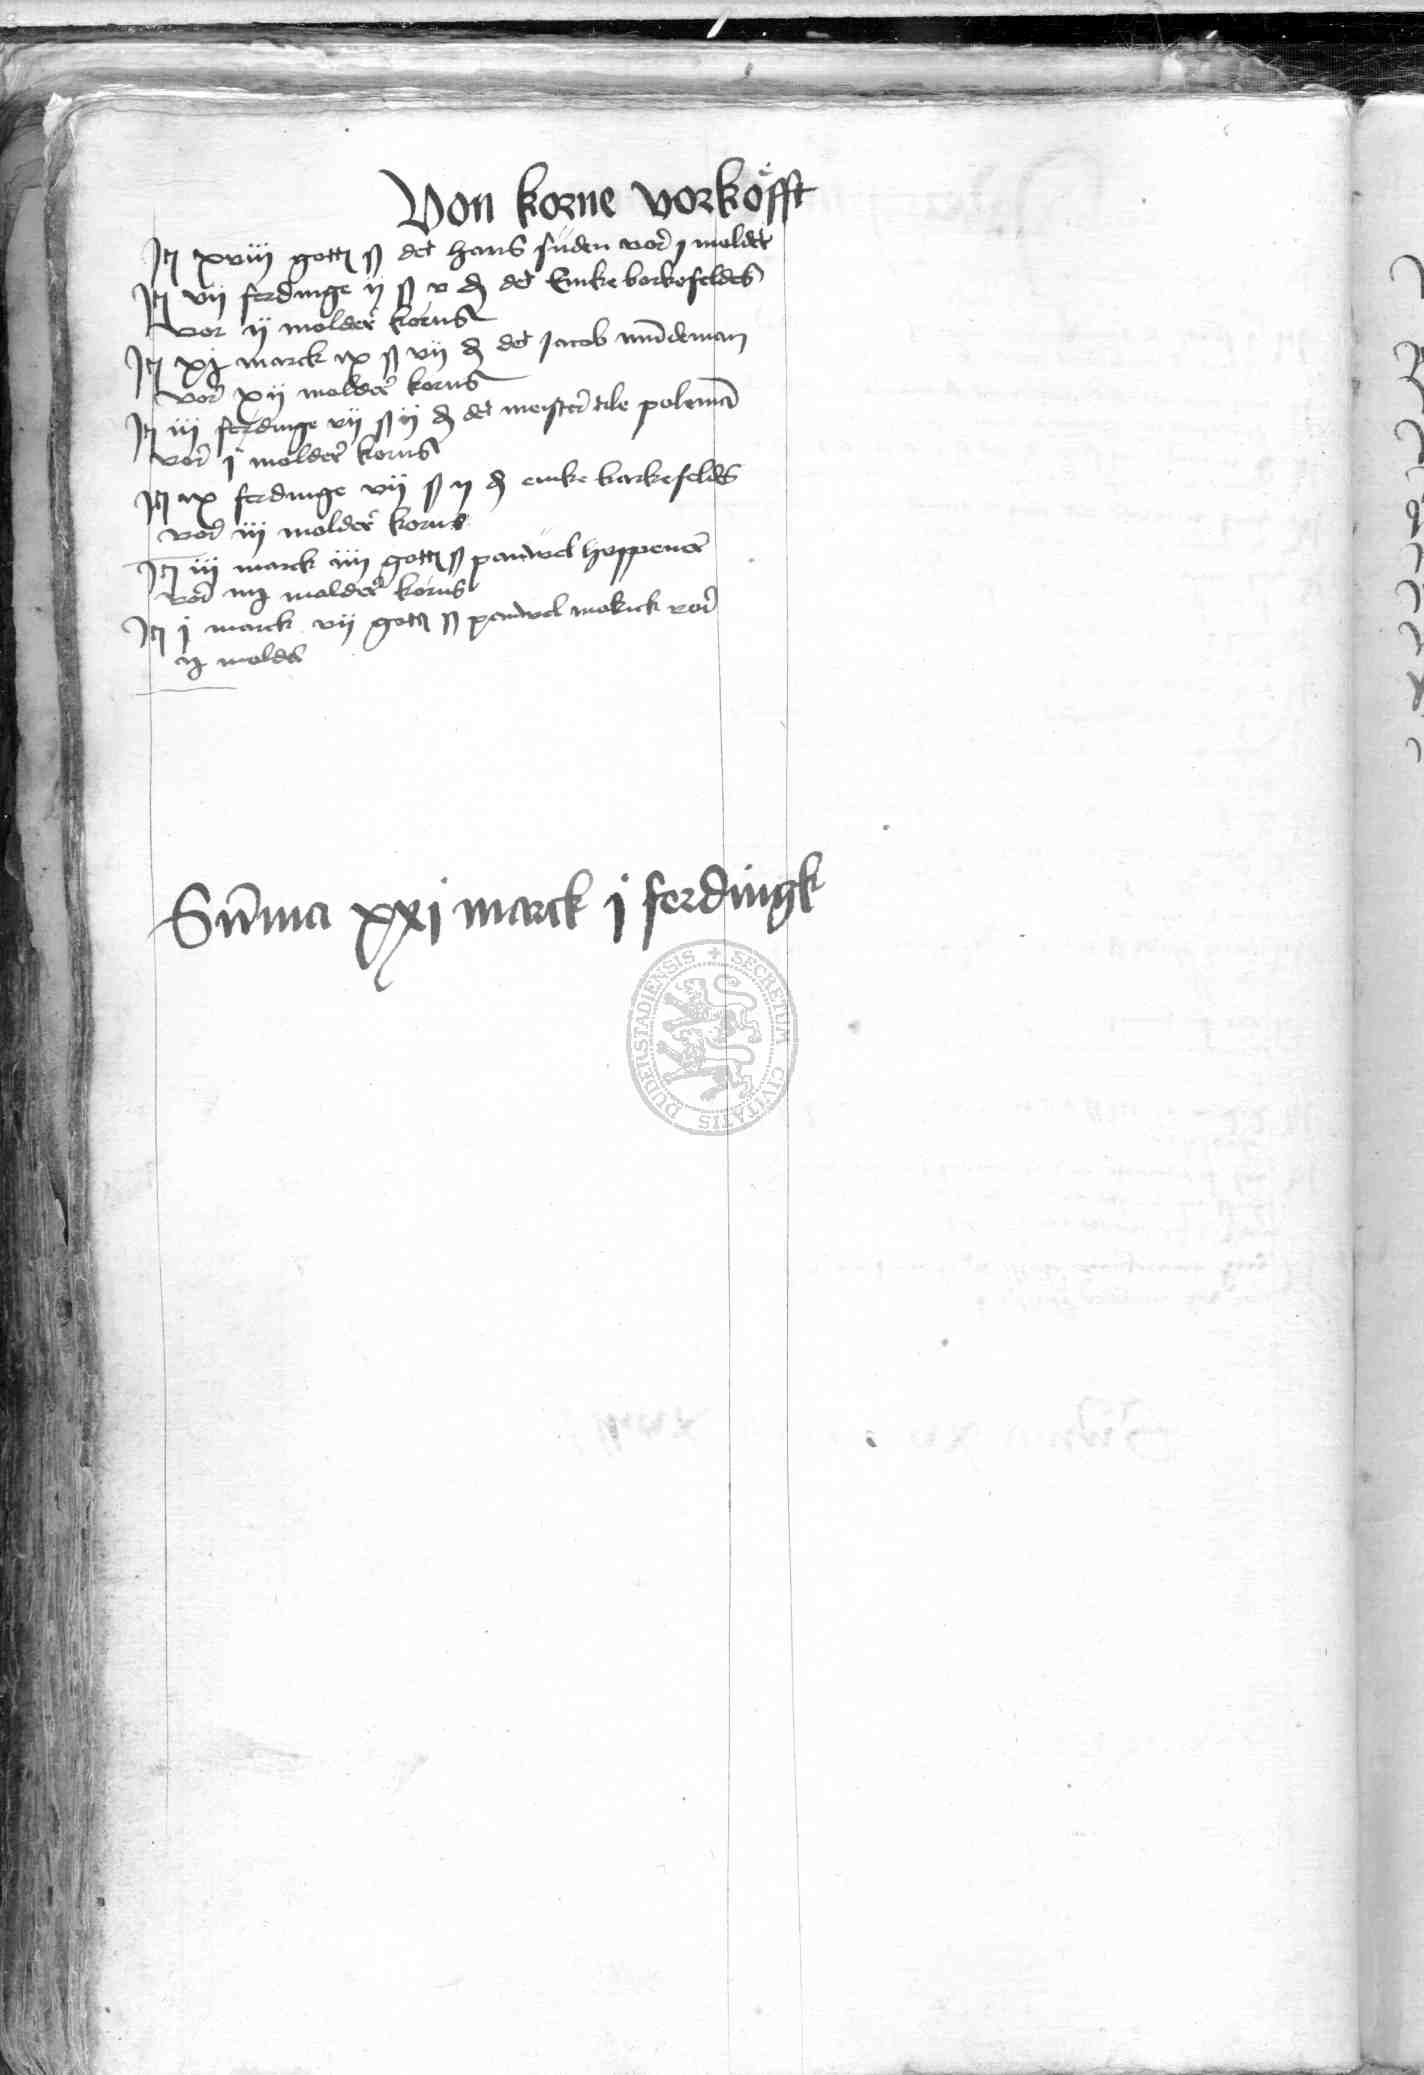 Von korne vorkofft
It xviii gott ß det hans suden vor j molder
It vij ferdinge ij ß v d det Emke borkefeldes
vor ij molder korns
It xj marck ix ß vij d det Jacob mu̅deman
vor xij molder korns
It iij ferdinge vij ß ij d det meister tile polema̅
vor j molder korns
It ix ferdinge vij ß ij d emke barkefeldes
vor iij molder korns
It iii marck iiij gott ß pauwel heppener
vor molder korns
It j marck vij gott ß pauwel mokick vor
molder
Su̅ma xxj marck j ferdingk
SECRETUM CIVITATIS DUDERSTADIENSIS